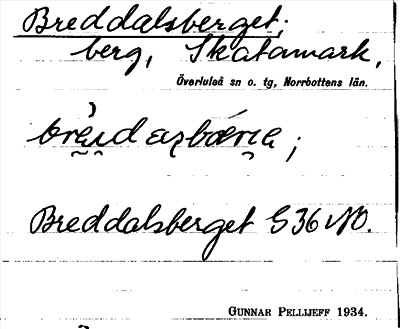 Breddalsberget;
berg, Skatamark,
Överluleå sn o. tg, Norrbottens län.
Breddalsberget G 36 NO.
GUNNAR PELLIJEFF 1934.